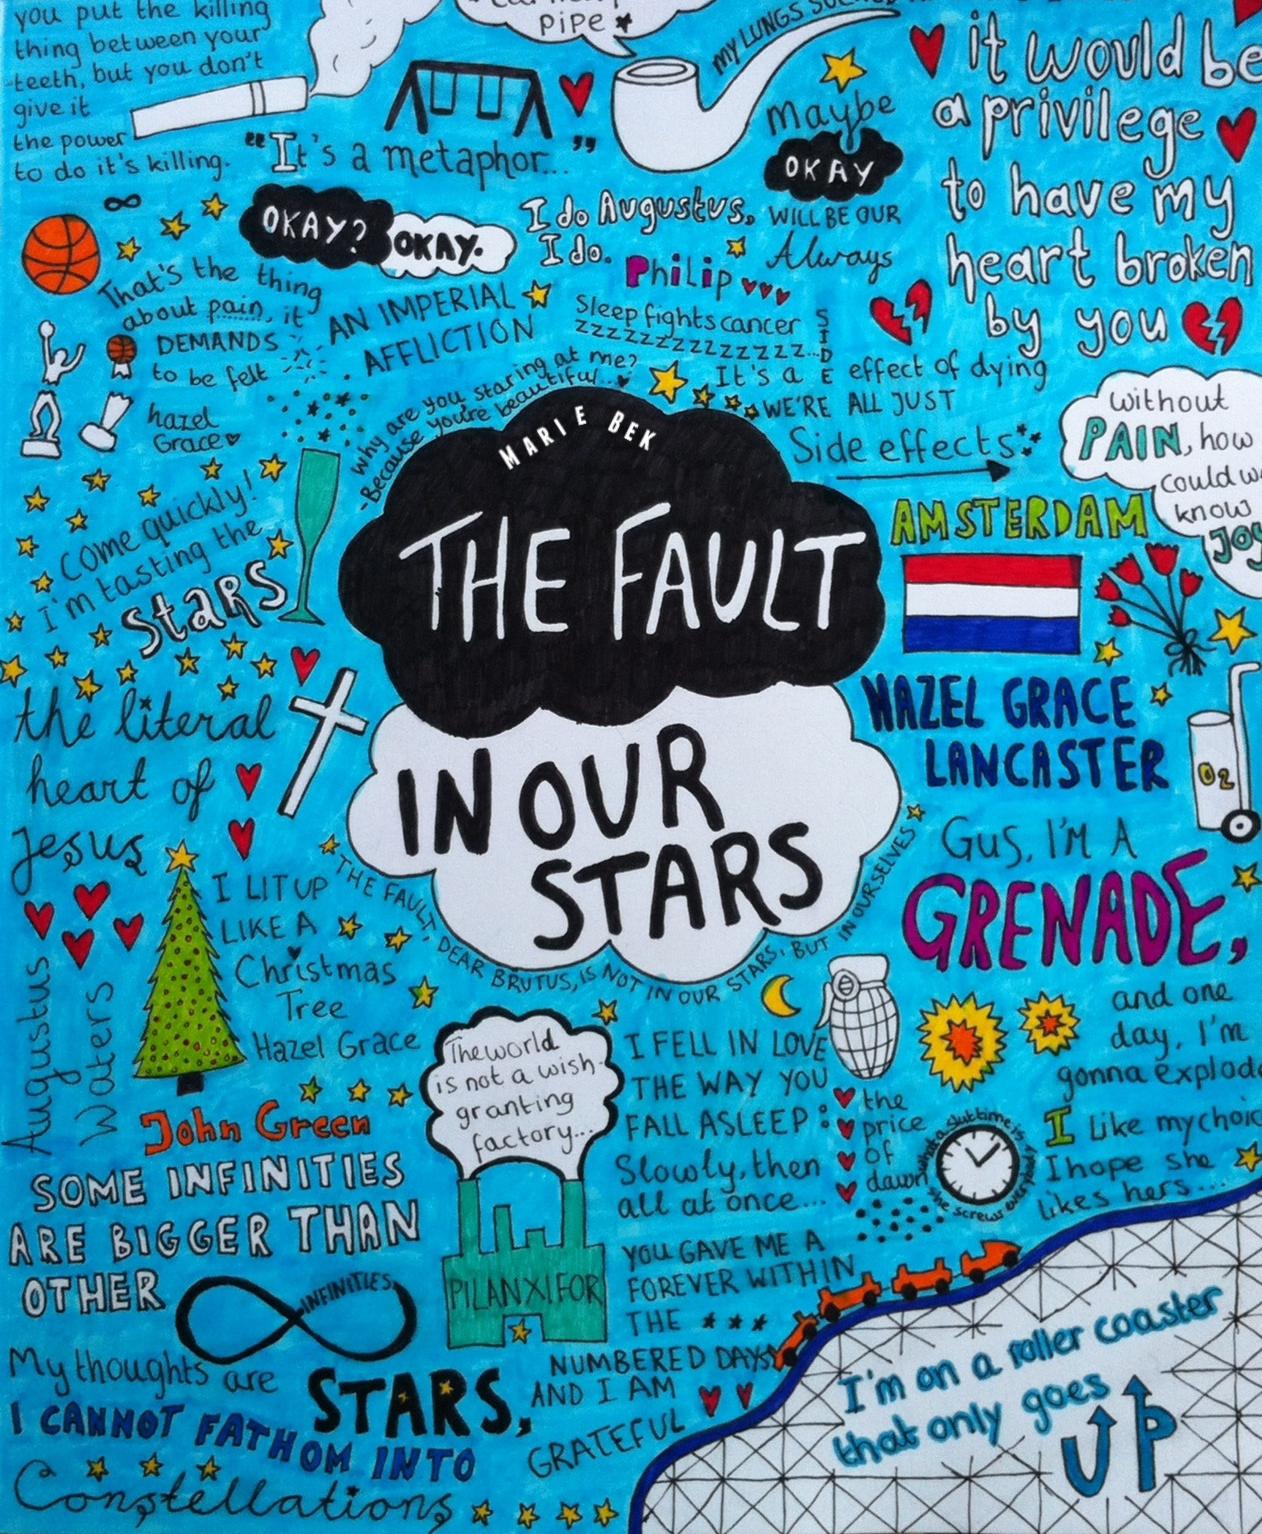 you put the killing
thing between your
teeth, but you don't
give it
the power
to do it's killing.
"It's a metaphor..."
pipe
MY LUNGS
it would be
a privilege
to have my
heart broken
by you
Maybe
OKAY
WILL BE OUR
Always
OKAY?
OKAY.
I do Augustus,
I do.
Philip
That's the thing
about pain, it
DEMANDS
to be felt
hazel
Grace
AN IMPERIAL
AFFLICTION
Sleep fights cancer
zzzzzzzzzzzzzz...
It's a SIDE effect of dying
WE'RE ALL JUST
Side effects
Why are you staring at me?
-Because you're beautiful...
without
PAIN, how
could w
know
JOY
MARIE BEK
THE FAULT
IN OUR
STARS
AMSTERDAM
Come quickly!
I'm tasting the
STARS
the literal
heart of
Jesus
HAZEL GRACE
LANCASTER
O2
GUS, I'M A
GRENADE,
and one
day, I'm
gonna explode
THE FAULT, DEAR BRUTUS, IS NOT IN OUR STARS, BUT IN OURSELVES
I LIT UP
LIKE A
Christmas
Tree
Hazel Grace
Augustus
Waters
John Green
The world
is not a wish-
granting
factory...
PILANXIFOR
I FELL IN LOVE
THE WAY YOU
FALL ASLEEP:
Slowly, then
all at once...
the
price
of
dawn
what a slut time is
she screws everybody
I like my choic
I hope she
likes hers...
SOME INFINITIES
ARE BIGGER THAN
OTHER
INFINITIES
YOU GAVE ME A
FOREVER WITHIN
THE
NUMBERED DAYS
AND I AM
GRATEFUL
My thoughts are STARS,
I CANNOT FATHOM INTO
Constellations
I'm on a roller coaster
that only goes
UP